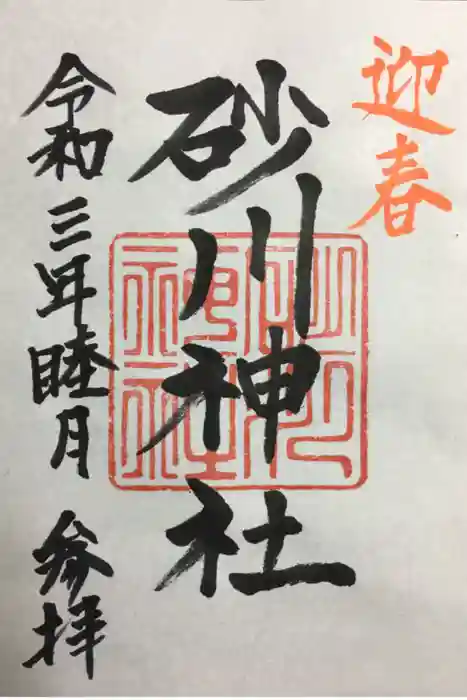 迎春
砂川神社
令和三年睦月 参拝
砂川神社